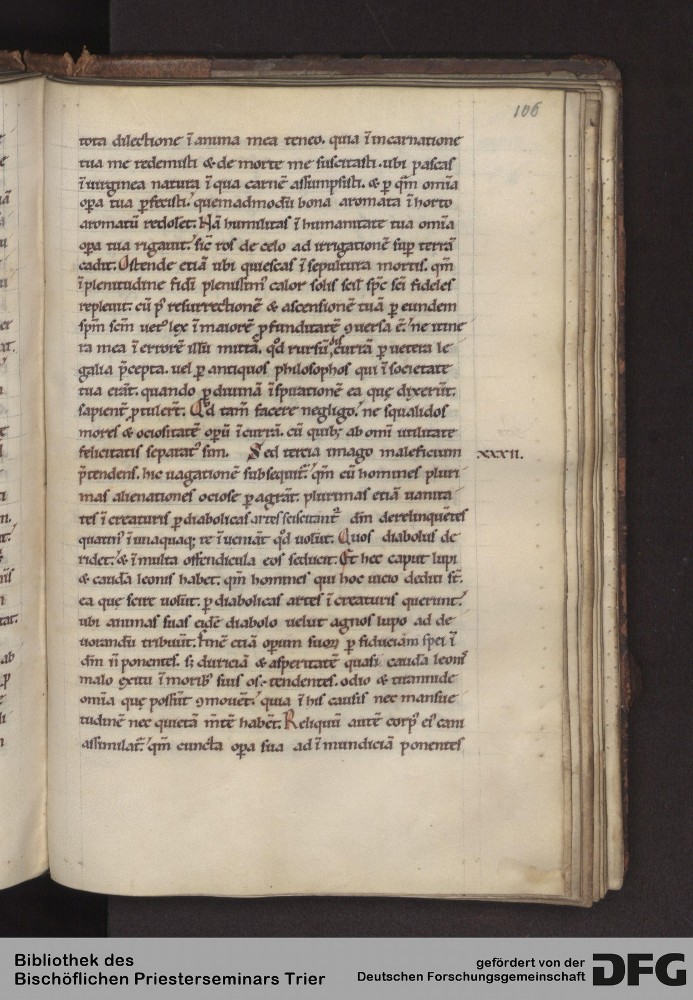 106
tota dilectione ī anima mea teneo. quia ī incarnatione
tua me redemisti & de morte me suscitasti. ubi pascas
ī uirginea natura ī qua carnē assumpsisti. & ꝑ qm̄ omīa
oꝑa tua ꝑfecisti. quemadmodū bona aromata ī horto
aromatū redolet. Nā humilitas ī humanitate tua omīa
oꝑa tua rigauit. sic ros de celo ad irrigationē suꝑ terrā
cadit. Ostende etiā ubi quiescas ī sepultura mortis. qm̄
ī plenitudine fidei plenissim' calor solis scil' sp̄c sc̄i fideles
repleuit. cū p' resurrectionē & ascensionē tuā ꝑ eundem
sp̄m sc̄m uet' lex ī maiorē ꝓfunditatē ꝯuersa ē. ne itine
ra mea ī errorē illū mittā. qd̄ rursū currā ꝑ uetera le
galia p̄cepta. uel ꝑ antiquos philosophos qui ī societate
tua erāt. quando ꝑ diuinā īspirationē ea quę dixerūt.
sapient' ꝓtuler̄t. Qd̄ tam̄ facere negligo. ne squalidos
mores & ociositatē opeꝝ īcurrā. cū quib; ab omī utilitate
felicitatis separat' sim. Sed tercia imago maleficium
XXXII.
p̄tendens. hic uagationē subsequit'. qm̄ cū homines pluri
mas alienationes ociose ꝑagrāt. plurimas etiā uanita
tes ī creaturis ꝑ diabolicas artes sciscitant' dm̄ derelinquētes
quatin' ī unaquaq; re īueniāt qd̄ uolūt. Quos diabolus de
ridet. & ī multa offendicula eos seducit. Et hec caput lupi
& caudā leonis habet. qm̄ homines qui hoc uicio dediti st̄.
ea quę scire uolūt. ꝑ diabolicas artes ī creaturis querunt.
ubi animas suas eidē diabolo uelut agnos lupo ad de
uorandū tribuūt. finē etiā operum suoꝝ ꝑ fiduciam spei ī
dm̄ n̄ ponentes. s; duriciā & asperitatē quasi caudā leonis
malo exitu ī morib' suis os-tendentes. odio & inuidie
omīa quę possūt ꝯmouēt. quia ī his causis nec mansue
tudinē nec quietā mētē habēt. Reliquū autē corp' ei' cani
assimilat'. qm̄ cuncta oꝑa sua ad ī mundiciā ponentes
Bibliothek des
Bischöflichen Priesterseminars Trier
gefördert von der
Deutschen Forschungsgemeinschaft
DFG